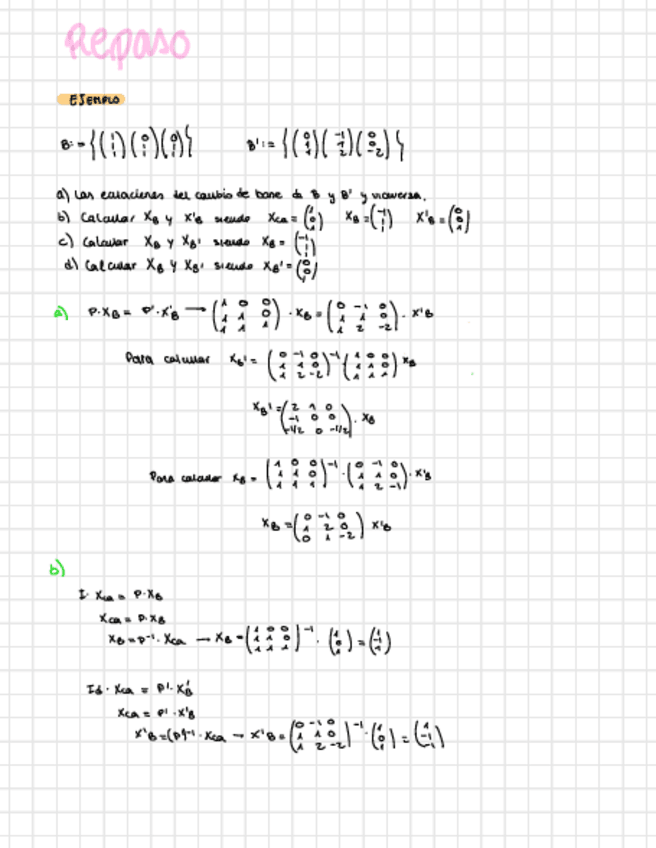 Repaso
EJEMPLO
B:={(1 1 1)(0 1 1)(0 0 1)} B':={(0 1 1)(-1 1 2)(0 0 -2)}
a) Las ecuaciones del cambio de base de B y B' y viceversa.
b) Calcular XB y X'B siendo Xca=(1 0 1) XB=(-1 1 1) X'B=(0 0 1)
c) Calcular XB y XB' siendo XB=(-1 1 1)
d) Calcular XB y XB' siendo XB'=(0 0 1)
a) P·XB = P'·X'B → (1 0 0 / 1 1 0 / 1 1 1)·XB = (0 -1 0 / 1 1 0 / 1 2 -2)·X'B
Para calcular XB' = (0 -1 0 / 1 1 0 / 1 2 -2)⁻¹ (1 0 0 / 1 1 0 / 1 1 1) XB
XB' = (2 1 0 / -1 0 0 / -1/2 0 -1/2)·XB
Para calcular XB = (1 0 0 / 1 1 0 / 1 1 1)⁻¹·(0 -1 0 / 1 1 0 / 1 2 -1)·X'B
XB = (0 -1 0 / 1 2 0 / 0 1 -2) X'B
b)
I·Xca = P·XB
Xca = P·XB
XB = P⁻¹·Xca → XB = (1 0 0 / 1 1 0 / 1 1 1)⁻¹·(1 0 1) = (1 -1 1)
Id·Xca = P'·X'B
Xca = P'·X'B
X'B = (P')⁻¹·Xca → X'B = (0 -1 0 / 1 1 0 / 1 2 -2)⁻¹·(1 0 1) = (1 -1 -1)